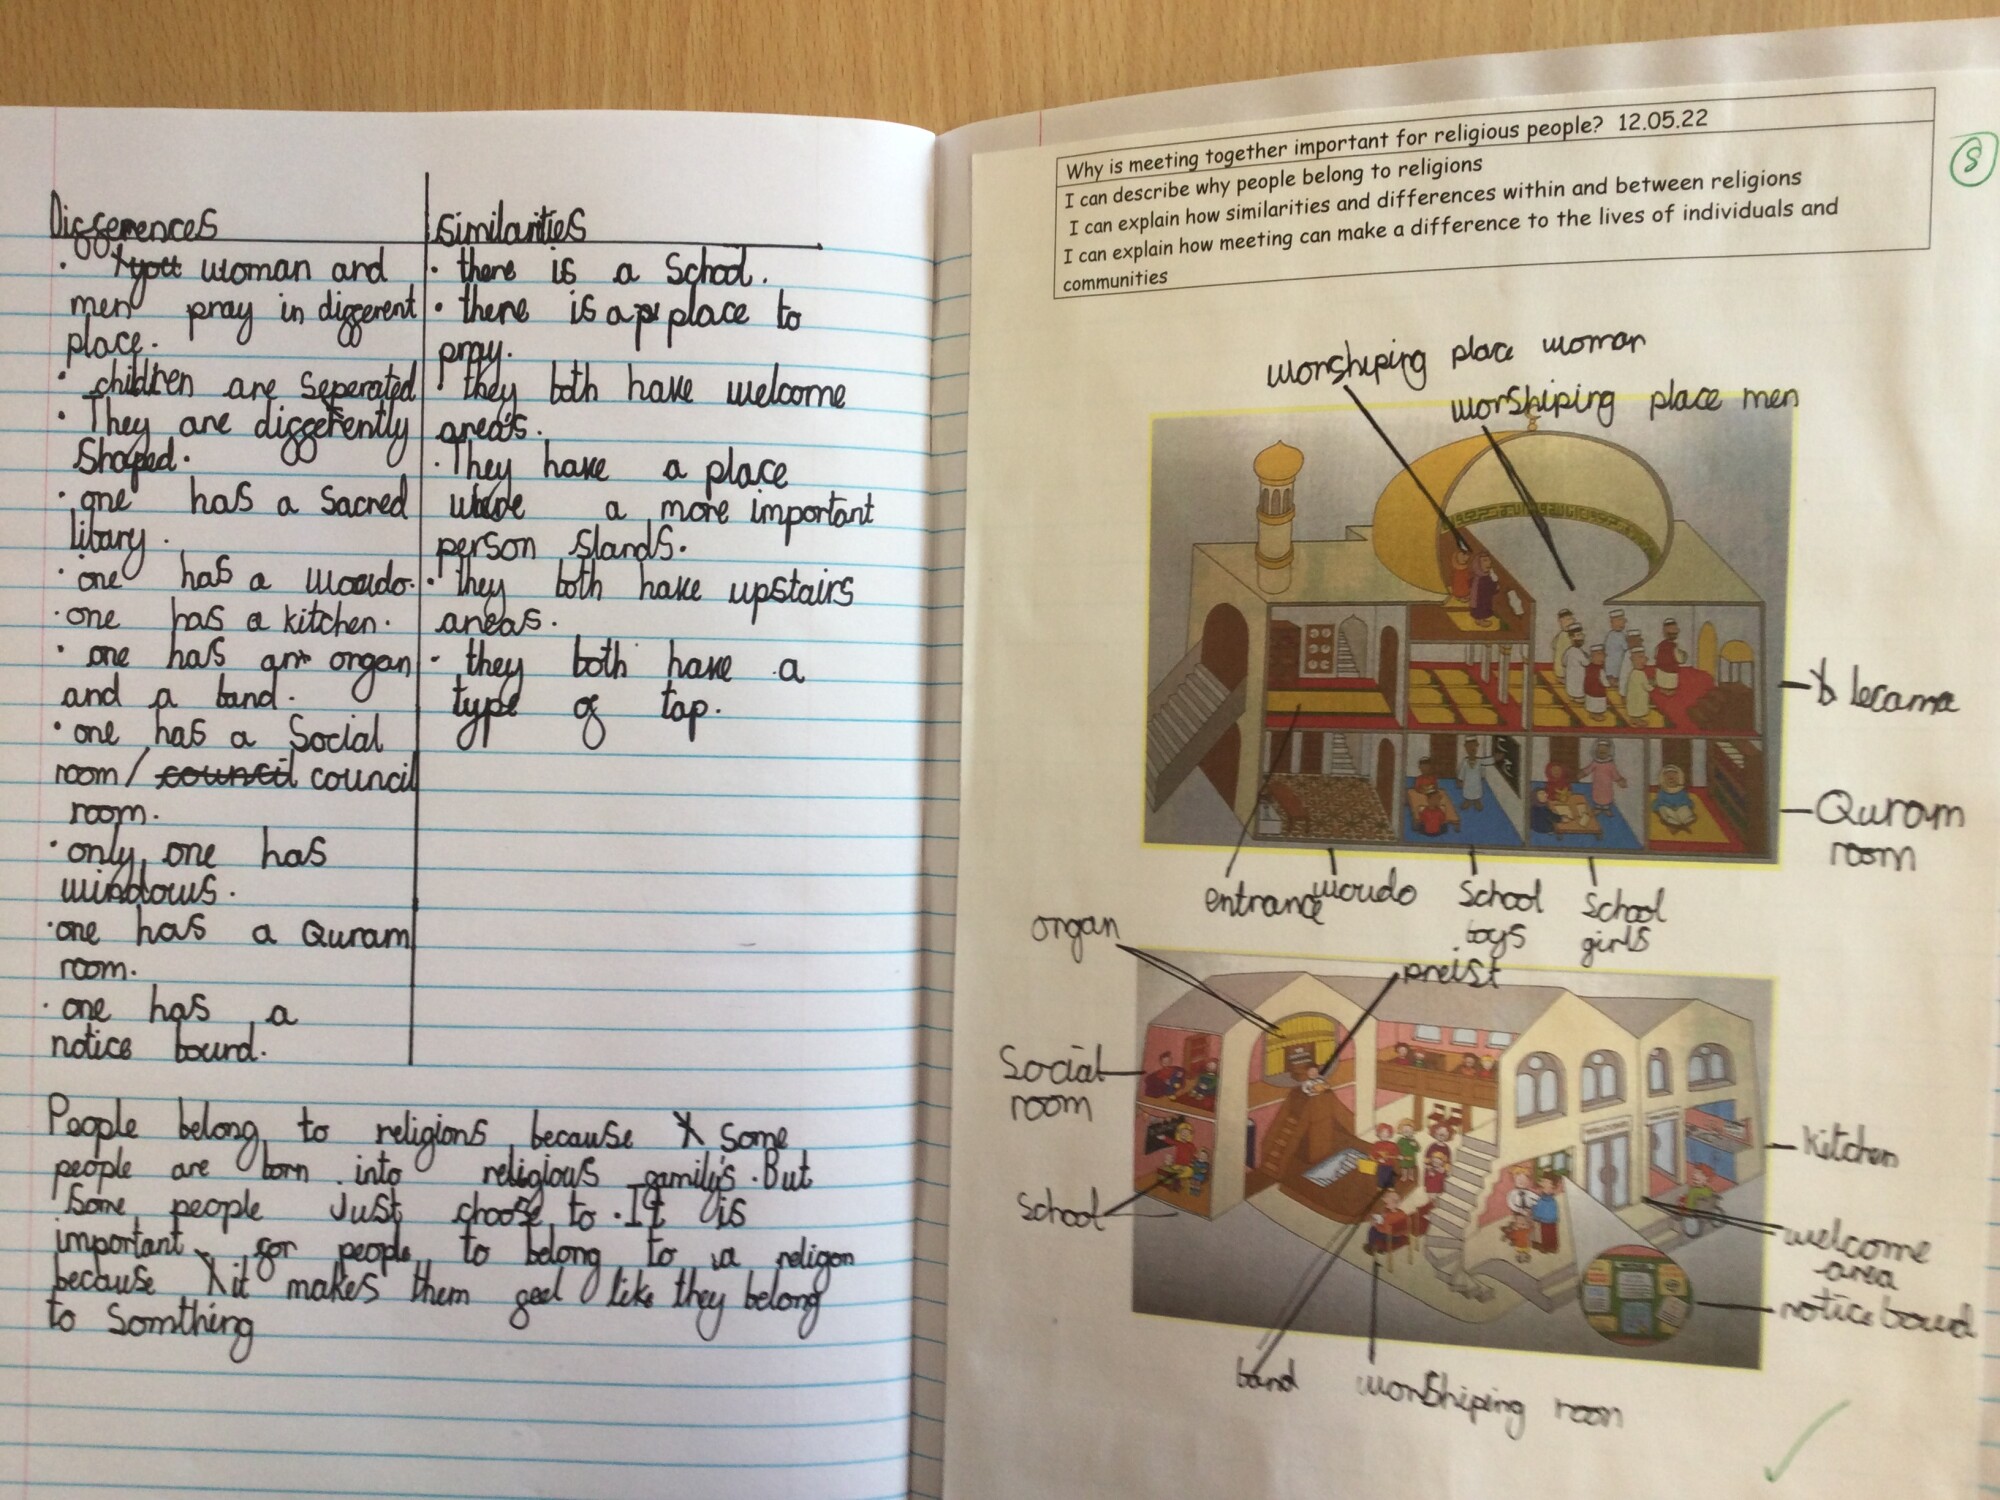 Differences
woman and
men pray in different
place.
• children are seperated
• They are differently
Shaped.
• one has a Sacred
libary.
• one has a woudo.
• one has a kitchen.
• one has an organ
and a band.
• one has a Social
room / council council
room.
• only one has
windows.
• one has a Quram
room.
• one has a
notice bourd.
similarities
• there is a School.
• there is a place to
pray.
• they both have welcome
area's.
• They have a place
a more important
person stands.
• they both have upstairs
areas.
• they both have a
type of tap.
People belong to religions because some
people are born into religious family's. But
Some people Just choose to. It is
important for people to belong to a religon
because it makes them feel like they belong
to Somthing
Why is meeting together important for religious people? 12.05.22
I can describe why people belong to religions
I can explain how similarities and differences within and between religions
I can explain how meeting can make a difference to the lives of individuals and
communities
S
worshiping place woman
worshiping place men
Quram
room
entrance
woudo
School
boys
School
girls
organ
preist
Social
room
School
Kitchen
welcome
area
notice bourd
band
worshiping room